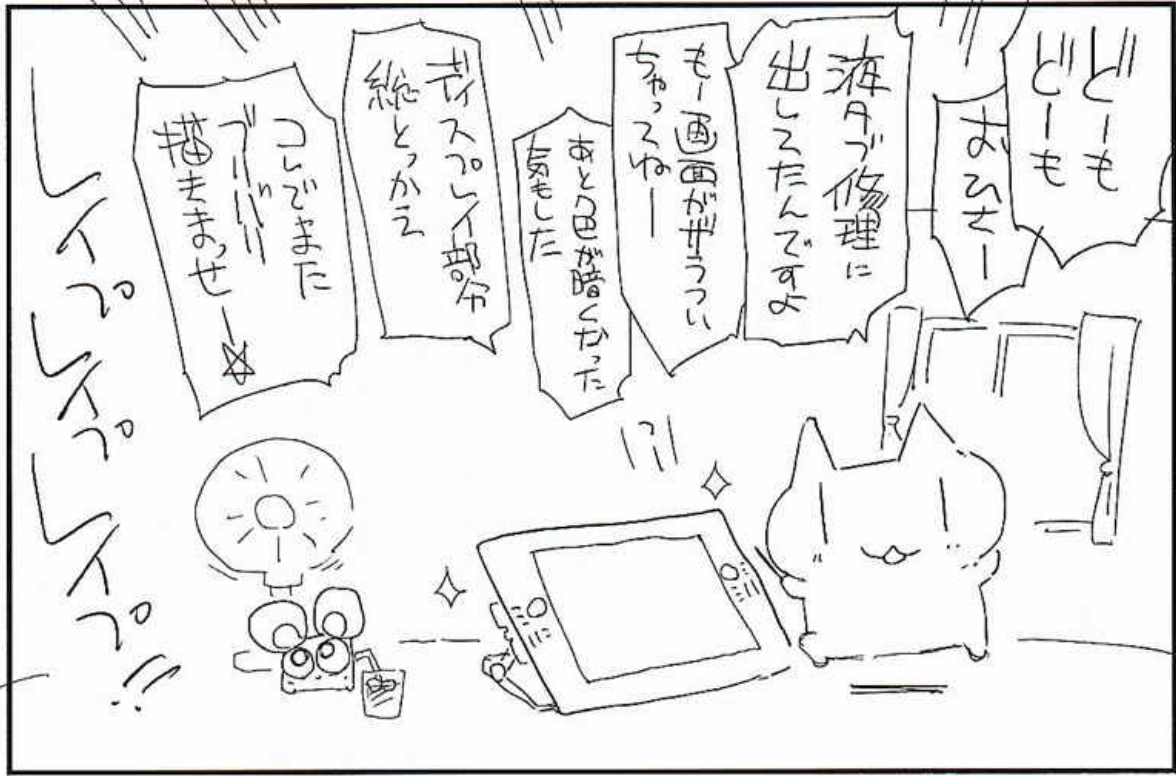 どーも
どーも
おひさー
液タブ修理に
出してたんですよ
もー画面がザラつい
ちゃってねー
あと色が暗くなった
気もした
ディスプレイ部分
総とっかえ
コレでまた
描きまっせー☆
レイプレイプレイプ!!